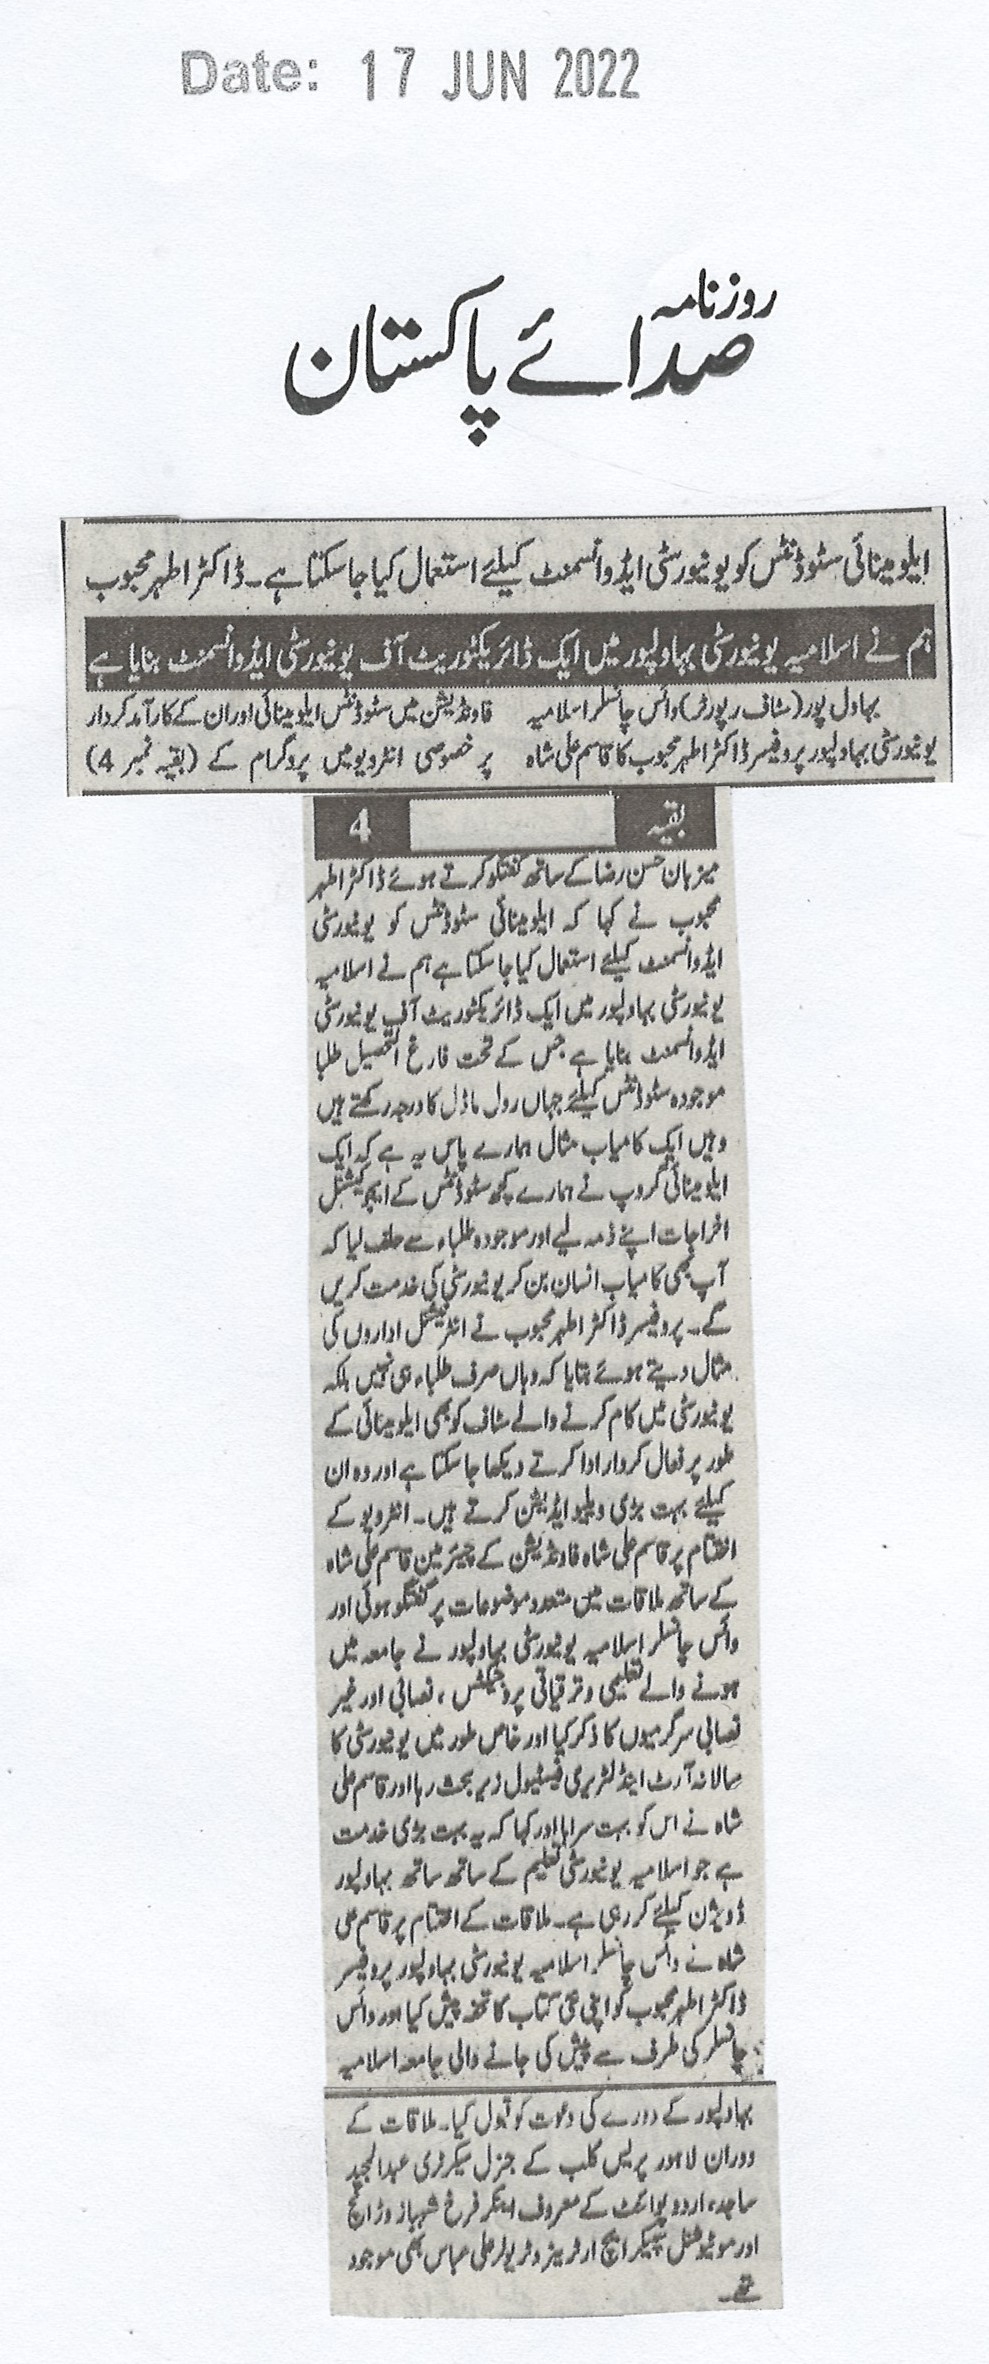 Date: 17 JUN 2022
روزنامہ
صدائے پاکستان
ایلومینائی سٹوڈنٹس کو یونیورسٹی ایڈوانسمنٹ کیلئے استعمال کیا جا سکتا ہے۔ ڈاکٹر اطہر محبوب
ہم نے اسلامیہ یونیورسٹی بہاولپور میں ایک ڈائریکٹوریٹ آف یونیورسٹی ایڈوانسمنٹ بنایا ہے
بہاول پور (سٹاف رپورٹر) وائس چانسلر اسلامیہ
یونیورسٹی بہاولپور پروفیسر ڈاکٹر اطہر محبوب کا قاسم علی شاہ
فاونڈیشن میں سٹوڈنٹس ایلومینائی اور ان کے کارآمد کردار
پر خصوصی انٹرویو میں پروگرام کے (بقیہ نمبر 4)
بقیہ 4
میزبان حسن رضا کے ساتھ گفتگو کرتے ہوئے ڈاکٹر اطہر
محبوب نے کہا کہ ایلومینائی سٹوڈنٹس کو یونیورسٹی
ایڈوانسمنٹ کیلئے استعمال کیا جا سکتا ہے ہم نے اسلامیہ
یونیورسٹی بہاولپور میں ایک ڈائریکٹوریٹ آف یونیورسٹی
ایڈوانسمنٹ بنایا ہے جس کے تحت فارغ التحصیل طلبا
موجودہ سٹوڈنٹس کیلئے جہاں رول ماڈل کا درجہ رکھتے ہیں
وہیں ایک کامیاب مثال ہمارے پاس یہ ہے کہ ایک
ایلومینائی گروپ نے ہمارے کچھ سٹوڈنٹس کے ایجوکیشنل
اخراجات اپنے ذمہ لیے اور موجودہ طلباء سے حلف لیا کہ
آپ بھی کامیاب انسان بن کر یونیورسٹی کی خدمت کریں
گے۔ پروفیسر ڈاکٹر اطہر محبوب نے انٹرنیشنل اداروں کی
مثال دیتے ہوئے بتایا کہ وہاں صرف طلباء ہی نہیں بلکہ
یونیورسٹی میں کام کرنے والے سٹاف کو بھی ایلومینائی کے
طور پر فعال کردار ادا کرتے دیکھا جا سکتا ہے اور وہ ان
کیلئے بہت بڑی ویلیو ایڈیشن کرتے ہیں۔ انٹرویو کے
اختتام پر قاسم علی شاہ فاونڈیشن کے چیئرمین قاسم علی شاہ
کے ساتھ ملاقات میں متعدد موضوعات پر گفتگو ہوئی اور
وائس چانسلر اسلامیہ یونیورسٹی بہاولپور نے جامعہ میں
ہونے والے تعلیمی و ترقیاتی پروجیکٹس، نصابی اور غیر
نصابی سرگرمیوں کا ذکر کیا اور خاص طور میں یونیورسٹی کا
سالانہ آرٹ اینڈ لٹریری فیسٹیول زیر بحث رہا اور قاسم علی
شاہ نے اس کو بہت سراہا اور کہا کہ یہ بہت بڑی خدمت
ہے جو اسلامیہ یونیورسٹی تعلیم کے ساتھ ساتھ بہاولپور
ڈویژن کیلئے کر رہی ہے۔ ملاقات کے اختتام پر قاسم علی
شاہ نے وائس چانسلر اسلامیہ یونیورسٹی بہاولپور پروفیسر
ڈاکٹر اطہر محبوب کو اپنی نئی کتاب کا تحفہ پیش کیا اور وائس
چانسلر کی طرف سے پیش کی جانے والی جامعہ اسلامیہ
بہاولپور کے دورے کی دعوت کو قبول کیا۔ ملاقات کے
دوران لاہور پریس کلب کے جنرل سیکرٹری عبدالمجید
ساجد، اردو پوائنٹ کے معروف اینکر فرخ شہباز وڑائچ
اور موٹیوشنل سپیکر ایچ آر ٹرینر و ٹریولر علی عباس بھی موجود
تھے۔